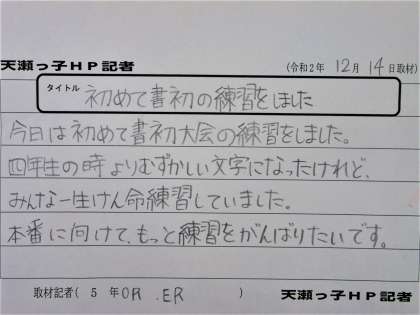 天瀬っ子HP記者 (令和2年 12月 14日取材)
タイトル 初めて書初の練習をしました
今日は初めて書初大会の練習をしました。
四年生の時よりむずかしい文字になったけれど、
みんな一生けん命練習していました。
本番に向けて、もっと練習をがんばりたいです。
取材記者( 5 年 OR .ER ) 天瀬っ子HP記者